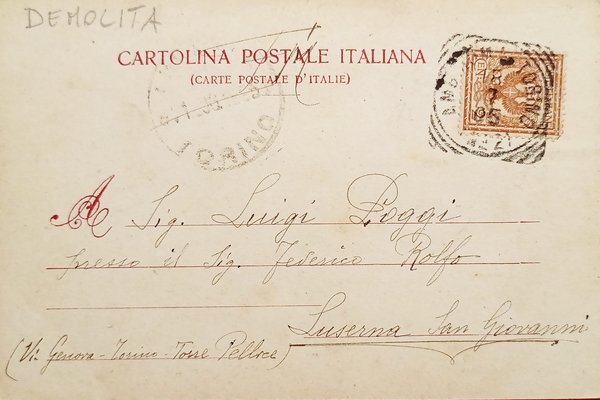 DEMOLITA
CARTOLINA POSTALE ITALIANA
(CARTE POSTALE D'ITALIE)
TORINO
A Sig. Luigi Poggi
presso il Sig. Federico Rolfo
Luserna San Giovanni
(Via Genova - Torino - Torre Pellice)